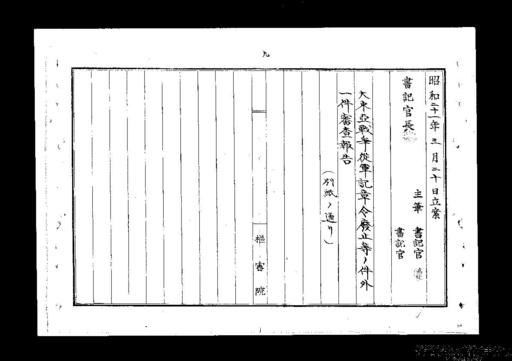 九
昭和二十一年三月二十日立案
書記官長
主筆 書記官
書記官
大東亜戦争従軍記章令廃止等ノ件外
一件審査報告
(別紙ノ通リ)
枢密院